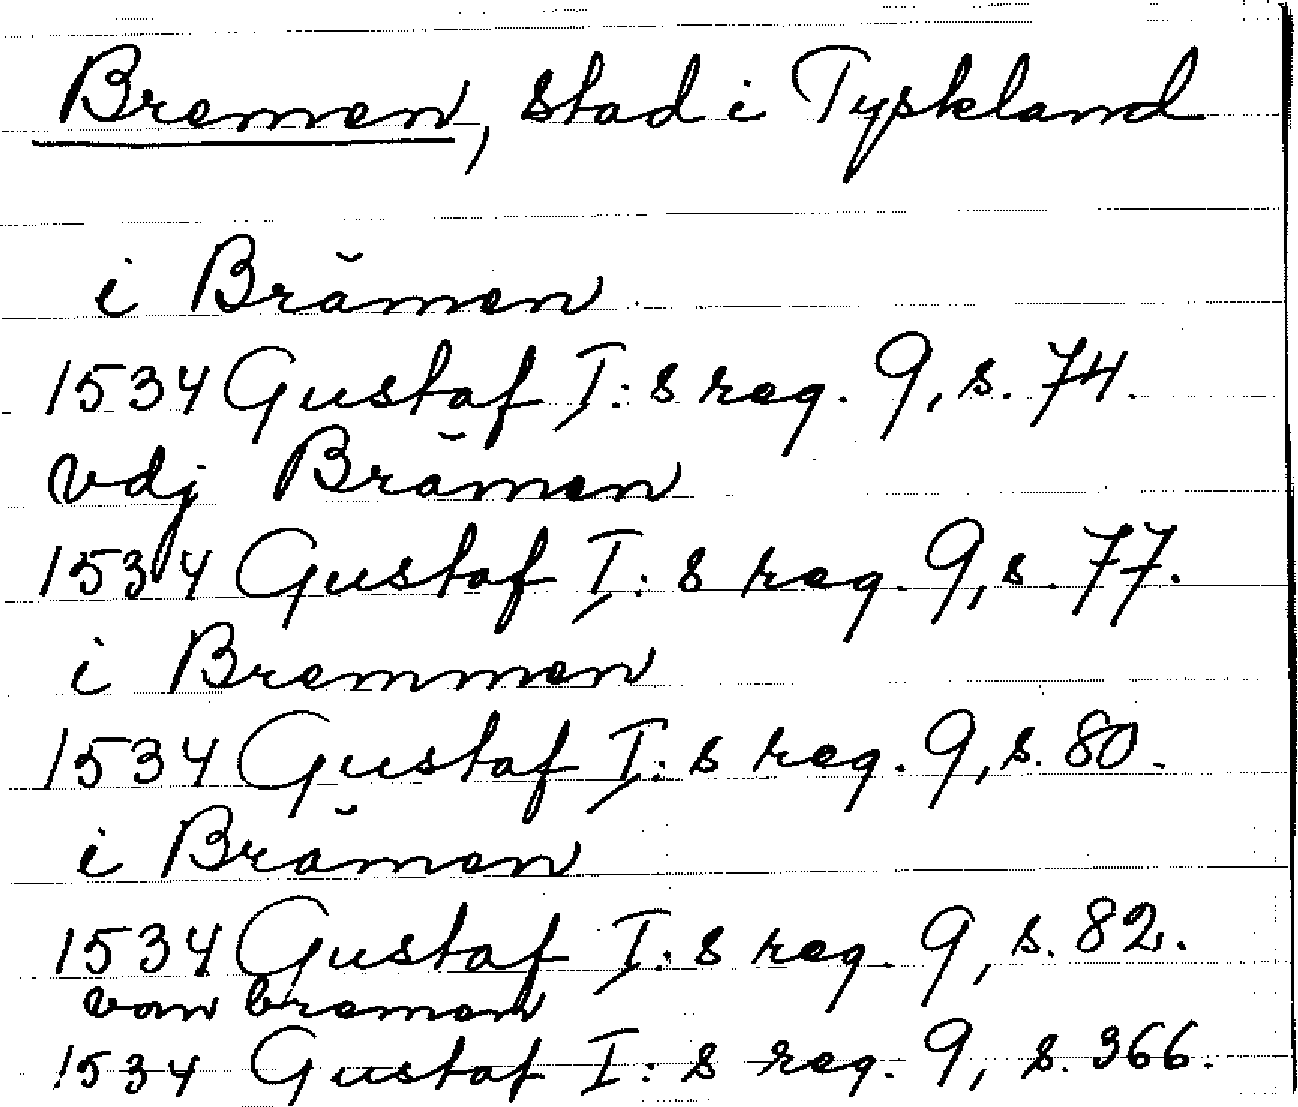 Bremen, stad i Tyskland
i Brămen
1534 Gustaf I:s reg. 9, s. 74.
vdj Brămen
1534 Gustaf I:s reg. 9, s. 77.
i Bremmen
1534 Gustaf I:s reg. 9, s. 80.
i Brămen
1534 Gustaf I:s reg. 9, s. 82.
van bremen
1534 Gustaf I:s reg. 9, s. 366.